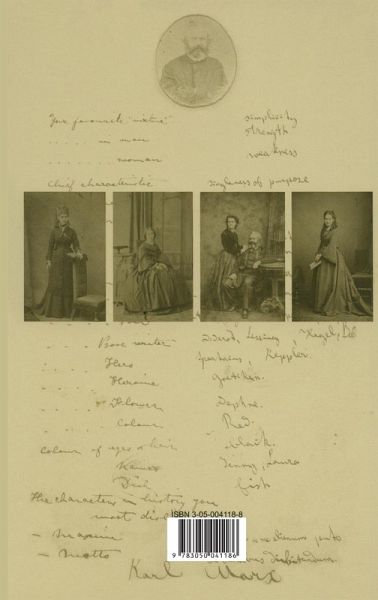 Your favourite virtue simplicity
. . . . . . in man strength
. . . . . . woman weakness
Chief characteristic singleness of purpose
. . . . Prose writer Diderot, Lessing, Hegel,
. . . . Hero Spartacus, Keppler.
. . . . Heroine Gretchen.
. . . . Flower Daphne.
. . . . Colour Red.
Colour of eyes & hair black.
Names Jenny, Laura
Dish Fish
The characters in history you
most
ISBN 3-05-004118-8
- Maxim
- Motto
9 783050 041186
Karl Marx